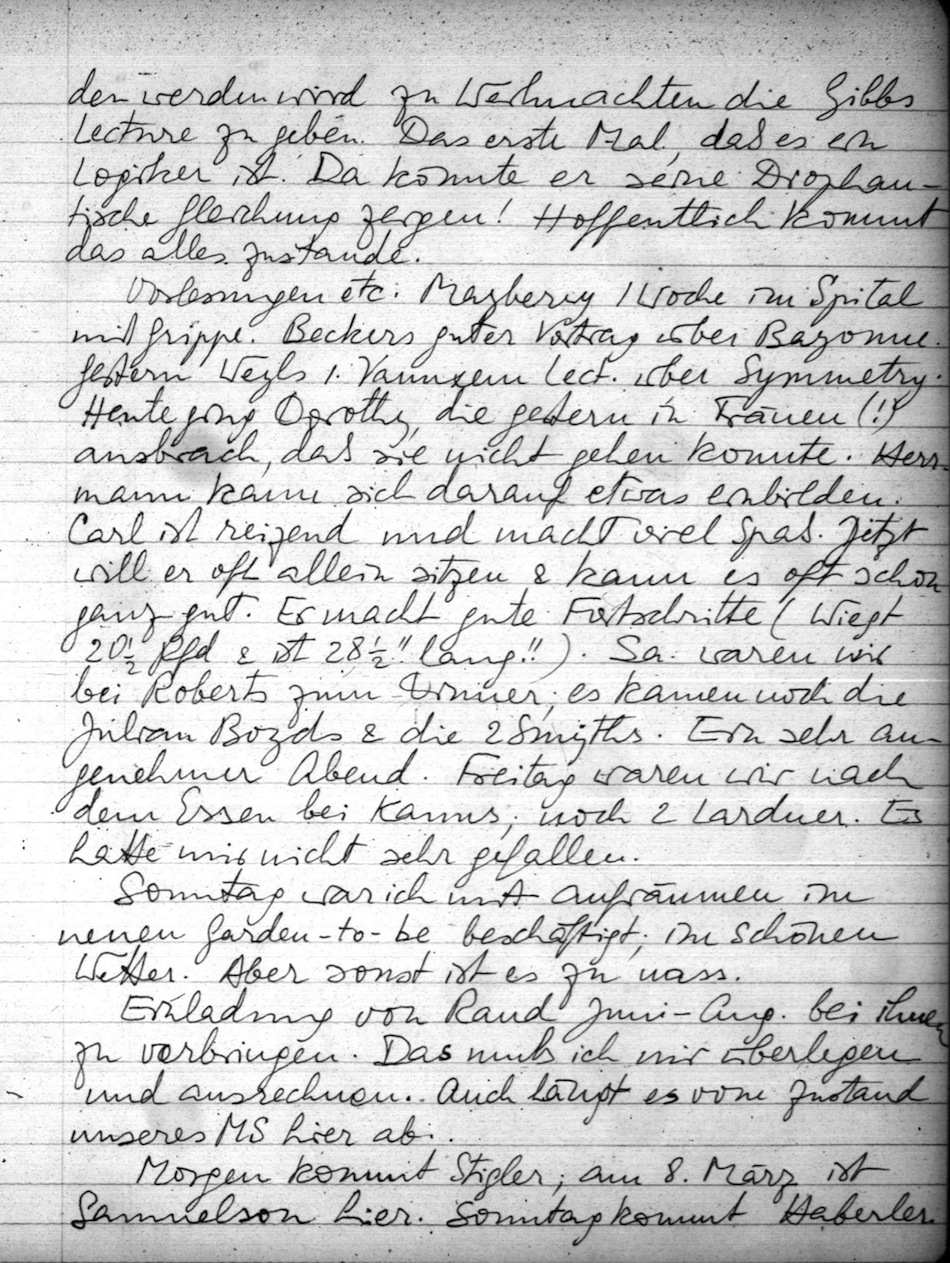 den werden wird zu Weihnachten die Gibbs
Lecture zu geben. Das erste Mal, daß es ein
Logiker ist. Da könnte er seine Diophan-
tische Gleichung zeigen! Hoffentlich kommt
das alles zustande.
Vorlesungen etc. Mayberry 1 Woche im Spital
mit Grippe. Beckers guter Vortrag über Bayonne.
Gestern Weyls 1. Vanuxem Lect. über Symmetry.
Heute ging Dorothy, die gestern in Tränen (!)
ausbrach, daß sie nicht gehen konnte. Herr-
mann kann sich darauf etwas einbilden.
Carl ist reizend und macht viel Spaß. Jetzt
will er oft allein sitzen & kann es oft schon
ganz gut. Er macht gute Fortschritte (Wiegt
20½ Pfd & ist 28½" lang!!). Sa. waren wir
bei Roberts zum Dinner; es kamen noch die
Julian Boyds & die 2 Smyths. Ein sehr an-
genehmer Abend. Freitag waren wir nach
dem Essen bei Kanns, noch 2 Lardner. Es
hatte mir nicht sehr gefallen.
Sonntag war ich mit aufräumen im
neuen Garden-to-be beschäftigt; im schönen
Wetter. Aber sonst ist es zu nass.
Einladung von Rand Juni-Aug. bei ihnen
zu verbringen. Das muß ich mir überlegen
und ausrechnen. Auch hängt es vom Zustand
unseres MS hier ab.
Morgen kommt Stigler, am 8. März ist
Samuelson hier. Sonntag kommt Haberler.